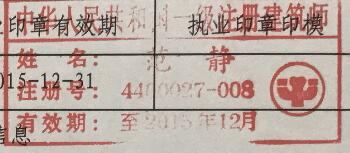 印章有效期 执业印章印模
中华人民共和国一级注册建筑师
姓名：范静
2015-12-31
注册号：4400027-008
有效期：至2015年12月
信息